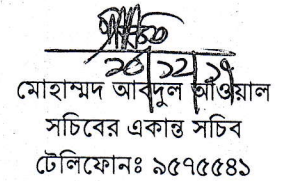 ১৩/১২/১৭
মোহাম্মদ আবদুল আওয়াল
সচিবের একান্ত সচিব
টেলিফোনঃ ৯৫৭৫৫৪১